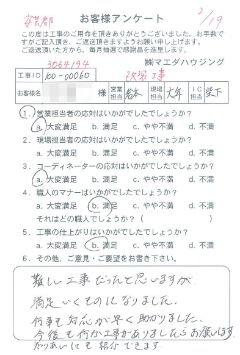 お客様アンケート 2/19
この度は工事のご用命を頂きありがとうございました。お手数で
すがご記入頂き、ご返送頂きますようお願い申し上げます。
ご返送頂いた方から、毎月抽選で感謝品を進呈します。
㈱マエダハウジング
工事ID 100-00060
お客様名 様 営業担当 現場担当 IC担当
1. 営業担当者の応対はいかがでしたでしょうか?
a. 大変満足 b. 満足 c. やや不満 d. 不満
2. 現場担当者の応対はいかがでしたでしょうか?
a. 大変満足 b. 満足 c. やや不満 d. 不満
3. コーディネーターの応対はいかがでしたでしょうか?
a. 大変満足 b. 満足 c. やや不満 d. 不満
4. 職人のマナーはいかがでしたでしょうか?
a. 大変満足 b. 満足 c. やや不満 d. 不満
それはどの職人でしょうか? ( )
5. 工事の仕上がりはいかがでしたでしょうか?
a. 大変満足 b. 満足 c. やや不満 d. 不満
6. その他、ご意見・ご要望をお書き下さい。
難しい工事だったと思いますが
満足いくものになりました。
何事も対応が早く助かりました。
今後も何か工事がありましたらお願いします
知りあいにも紹介できます